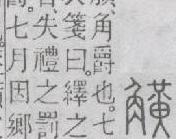 觵
角爵也。七
箋曰。繹之
失禮之罰
七月因鄉